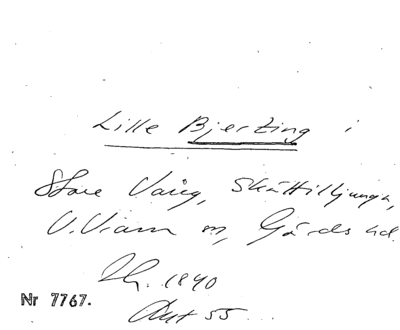 Lille Bjerzing i
Store Vång, Skättilljunga,
V. Vram sn, Gärds hd.
Nr 7767.
1840
55...